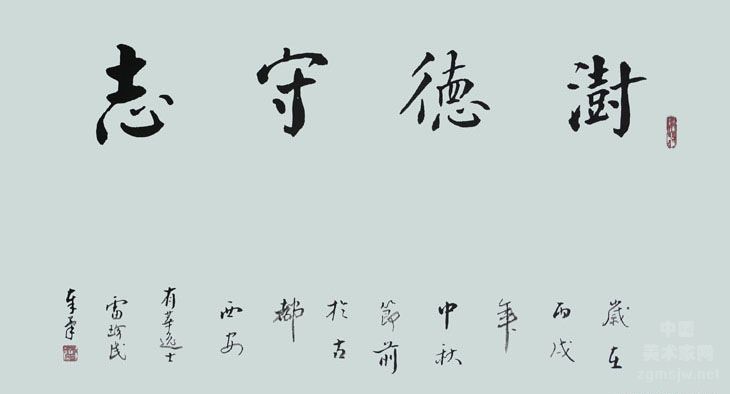 澍德守志
歲在
丙戌
年
中秋
節前
於古
都
西安
有莘逸士
雷珍民
中国
美术家网
zgmsjw.net